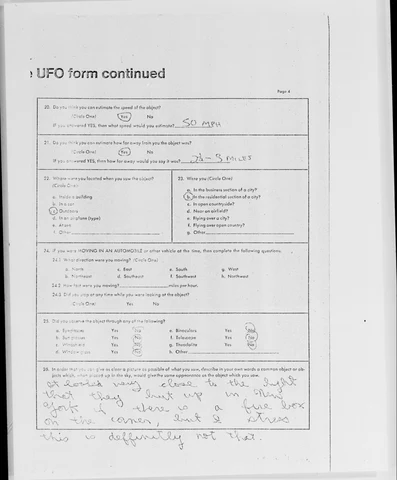 UFO form continued
Page 4
20. Do you think you can estimate the speed of the object?
(Circle One) Yes No
If you answered YES, then what speed would you estimate? 50 MPH
21. Do you think you can estimate how far away from you the object was?
(Circle One) Yes No
If you answered YES, then how far away would you say it was? 2½ - 3 MILES
22. Where were you located when you saw the object?
(Circle One)
a. Inside a building
b. In a car
c. Outdoors
d. In an airplane (type)
e. At sea
f. Other
23. Were you (Circle One)
a. In the business section of a city?
b. In the residential section of a city?
c. In open countryside?
d. Near an airfield?
e. Flying over a city?
f. Flying over open country?
g. Other
24. If you were MOVING IN AN AUTOMOBILE or other vehicle at the time, then complete the following questions:
24.1 What direction were you moving? (Circle One)
a. North c. East e. South g. West
b. Northeast d. Southeast f. Southwest h. Northwest
24.2 How fast were you moving? miles per hour.
24.3 Did you stop at any time while you were looking at the object?
(Circle One) Yes No
25. Did you observe the object through any of the following?
a. Eyeglasses Yes No e. Binoculars Yes No
b. Sun glasses Yes No f. Telescope Yes No
c. Windshield Yes No g. Theodolite Yes No
d. Window glass Yes No h. Other
26. In order that you can give as clear a picture as possible of what you saw, describe in your own words a common object or objects which, when placed up in the sky, would give the same appearance as the object which you saw.
it looked very close to the light
that they put up in New
York if there is a fire box
on the corner, but I stress
this is deffinatly not that.